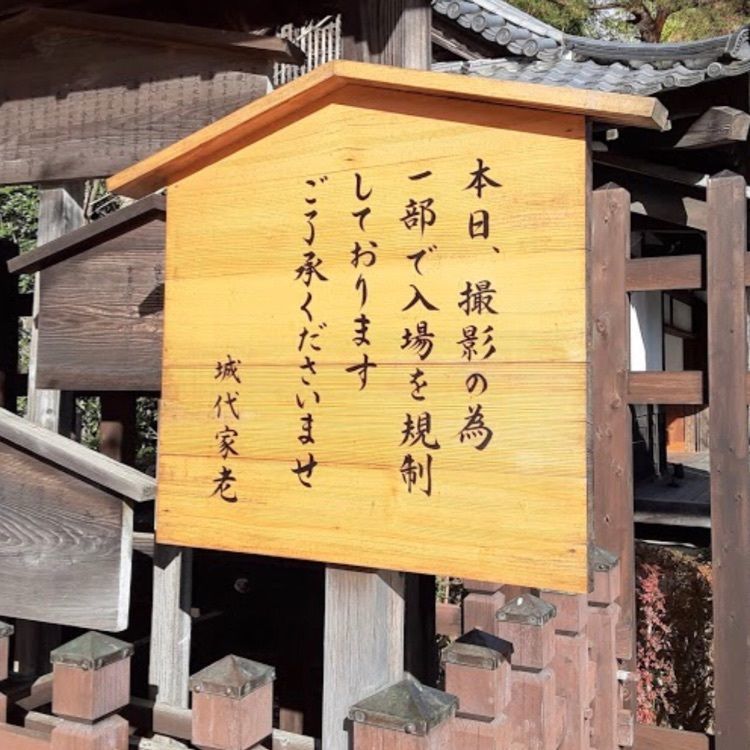 本日、撮影の為
一部で入場を規制
しております
ご了承くださいませ
城代家老